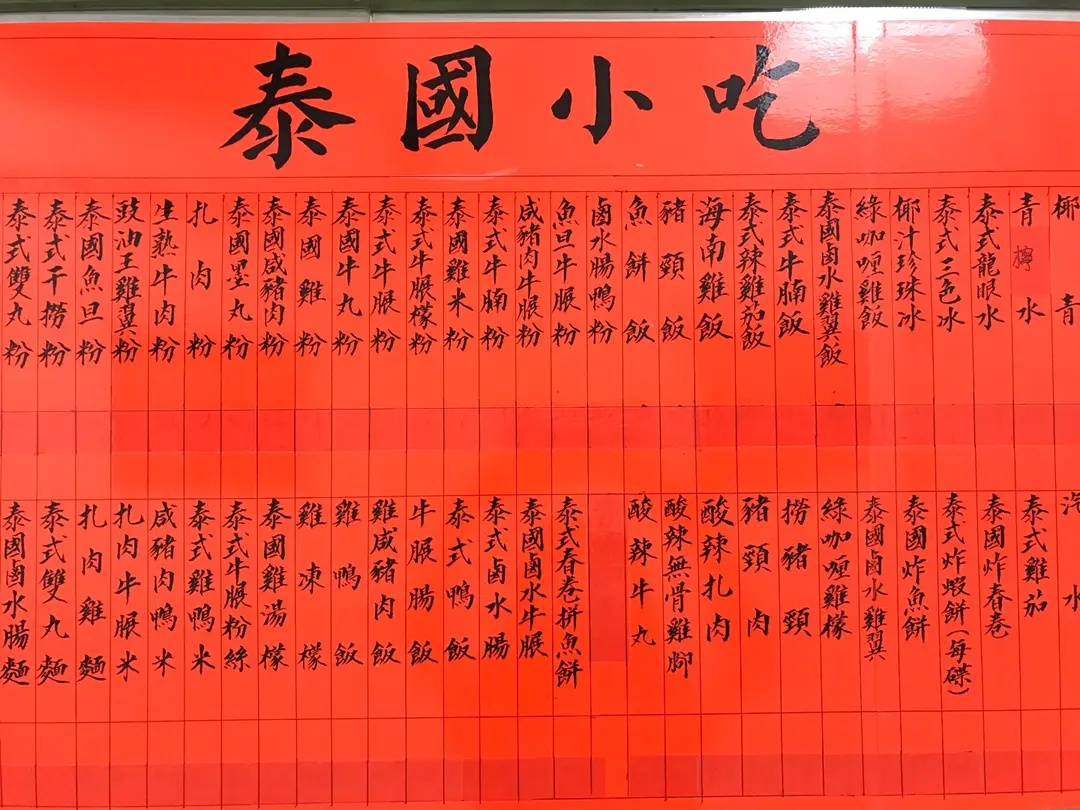 泰國小吃
椰青
青檸水
泰式龍眼水
泰式三色冰
椰汁珍珠冰
綠咖喱雞飯
泰國鹵水雞翼飯
泰式牛腩飯
泰式辣雞茄飯
海南雞飯
豬頸飯
魚餅飯
鹵水腸鴨粉
魚旦牛𦟌粉
咸豬肉牛𦟌粉
泰式牛腩粉
泰國雞米粉
泰式牛𦟌檬粉
泰式牛𦟌粉
泰國牛丸粉
泰國雞粉
泰國咸豬肉粉
泰國墨丸粉
扎肉粉
生熟牛肉粉
豉油王雞翼粉
泰國魚旦粉
泰式干撈粉
泰式雙丸粉
汽水
泰式雞茄
泰國炸春卷
泰式炸蝦餅(每碟)
泰國炸魚餅
泰國鹵水雞翼
綠咖喱雞檬
撈豬頸
豬頸肉
酸辣扎肉
酸辣無骨雞腳
酸辣牛丸
泰式春卷拼魚餅
泰國鹵水牛𦟌
泰式鹵水腸
泰式鴨飯
牛𦟌腸飯
雞咸豬肉飯
雞鴨飯
雞凍檬
泰國雞湯檬
泰式牛𦟌粉絲
泰式雞鴨米
咸豬肉鴨米
扎肉牛𦟌米
扎肉雞麵
泰式雙丸麵
泰國鹵水腸麵